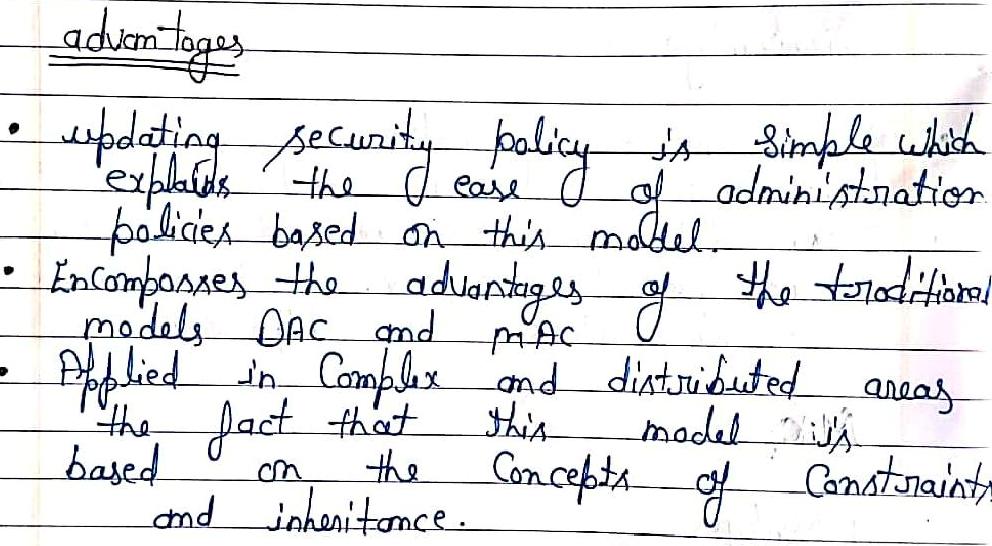 advantages
• updating security policy is simple which
explains the ease of administration
policies based on this model.
• Encompasses the advantages of the traditional
models DAC and MAC
• Applied in Complex and distributed areas
the fact that this model is
based on the Concepts of Constraints
and inheritance.